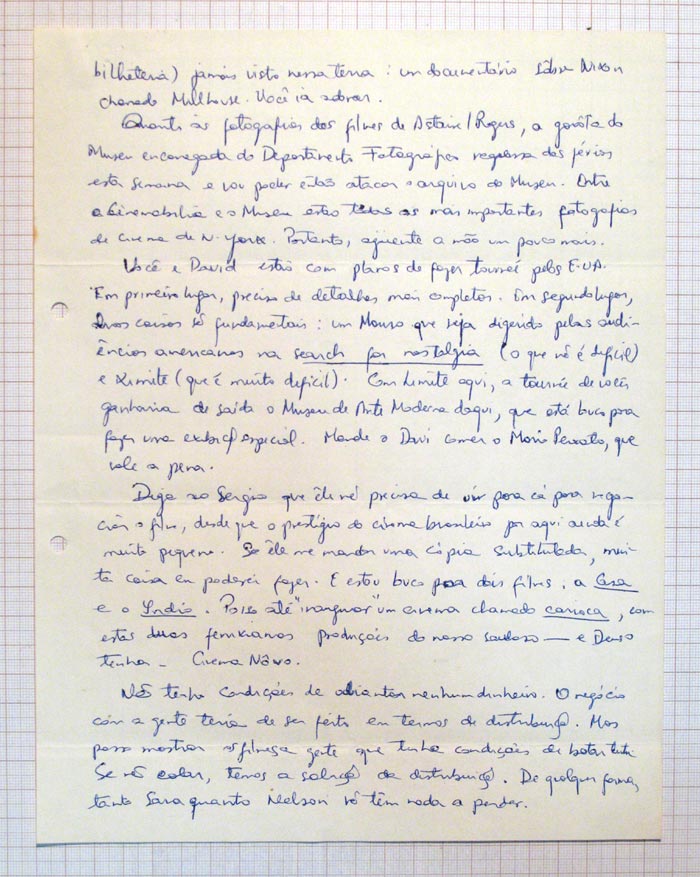 bilheteria) jamais visto nessa terra: um documentário sôbre Nixon
chamado Millhouse. Você ia adorar.
Quanto às fotografias dos filmes de Astaire/Rogers, a garôta do
Museu encarregada do Departamento Fotográfico regressa das férias
esta semana e vou poder então atacar o arquivo do Museu. Entre
a Cinemabilia e o Museu estão todas as mais importantes fotografias
de cinema de N. York. Portanto, aguente a mão um pouco mais.
Você e David estão com planos de fazer tourneé pelos E.UA.
Em primeiro lugar, preciso de detalhes mais completos. Em segundo lugar,
duas coisas são fundamentais: um Mauro que seja digerido pelas audi-
ências americanas na search for nostalgia (o que não é difícil)
e Limite (que é muito difícil). Com Limite aqui, a tournée de vocês
ganharia de saída o Museu de Arte Moderna daqui, que está louco para
fazer uma exibição especial. Mande o Davi comer o Mario Peixoto, que
vale a pena.
Diga ao Sergio que êle não precisa de vir para cá para nego-
ciar o filme, desde que o prestígio do cinema brasileiro por aqui ainda é
muito pequeno. Se êle me mandar uma cópia substitulada, mui-
ta coisa eu poderei fazer. E estou louco para dois filmes, a Casa
e o Índio. Posso até "inaugurar" um cinema chamado carioca, com
estas duas produções do nosso saudoso — e Deus o
tenha — Cinema Nôvo.
Não tenho condições de adiantar nenhum dinheiro. O negócio
com a gente teria de ser feito em termos de distribuição. Mas
posso mostrar os filmes a gente que tenha condições de botar tutu.
Se não colar, temos a solução da distribuição. De qualquer forma,
tanto Sara quanto Nelson não têm nada a perder.